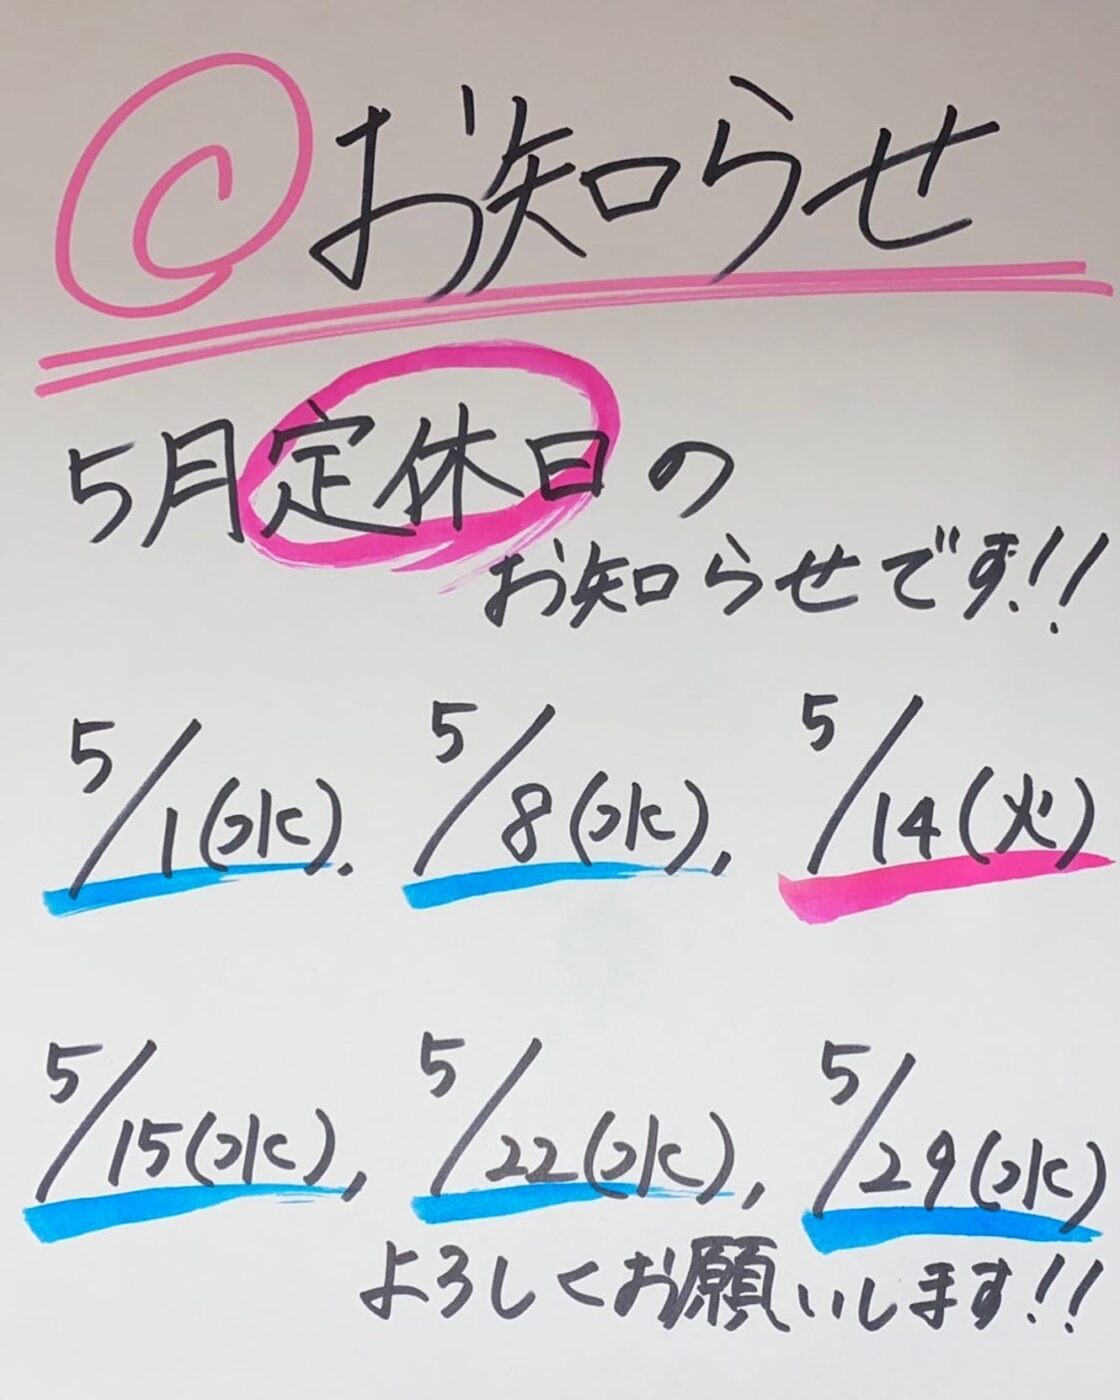 お知らせ
5月定休日の
お知らせです!!
5/1(水). 5/8(水), 5/14(火)
5/15(水), 5/22(水), 5/29(水)
よろしくお願いします!!